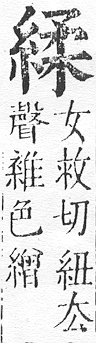 䋴
女救切紐厺
聲雜色繒